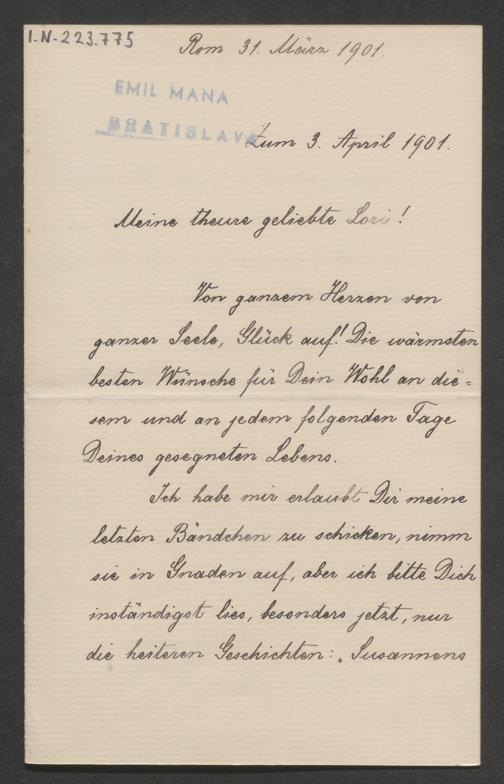 I.N-223.775
Rom 31. März 1901.
EMIL MANA
BRATISLAVA
Zum 3. April 1901.
Meine theure geliebte Lori!
Von ganzem Herzen von
ganzer Seele, Glück auf! Die wärmsten
besten Wünsche für Dein Wohl an die=
sem und an jedem folgenden Tage
Deines gesegneten Lebens.
Ich habe mir erlaubt Dir meine
letzten Bändchen zu schicken, nimm
sie in Gnaden auf, aber ich bitte Dich
inständigst lies, besonders jetzt, nur
die heiteren Geschichten: „Susannens